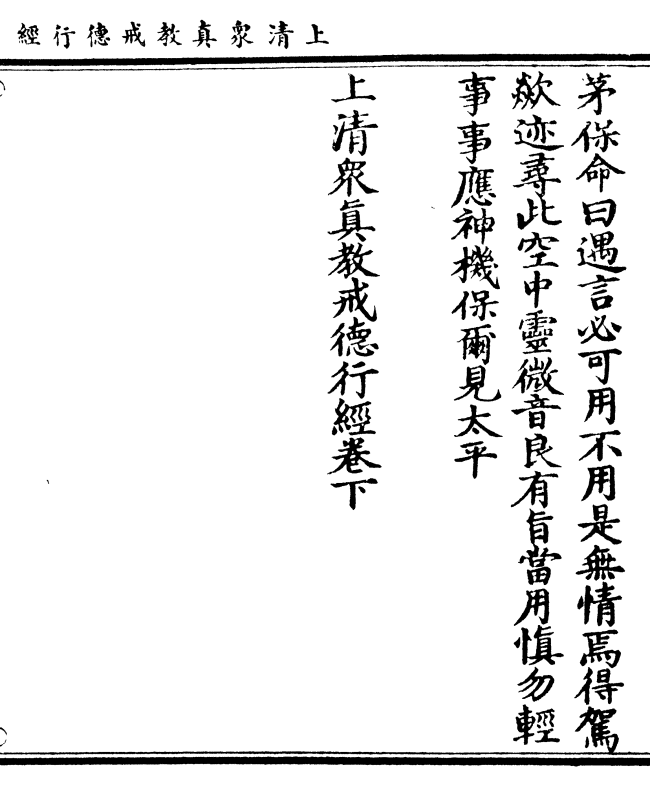 上清衆真教戒德行經
茅保命曰遇言必可用不用是無情焉得駕
歘迹尋此空中靈微音良有旨當用慎勿輕
事事應神機保爾見太平
上清衆真教戒德行經卷下